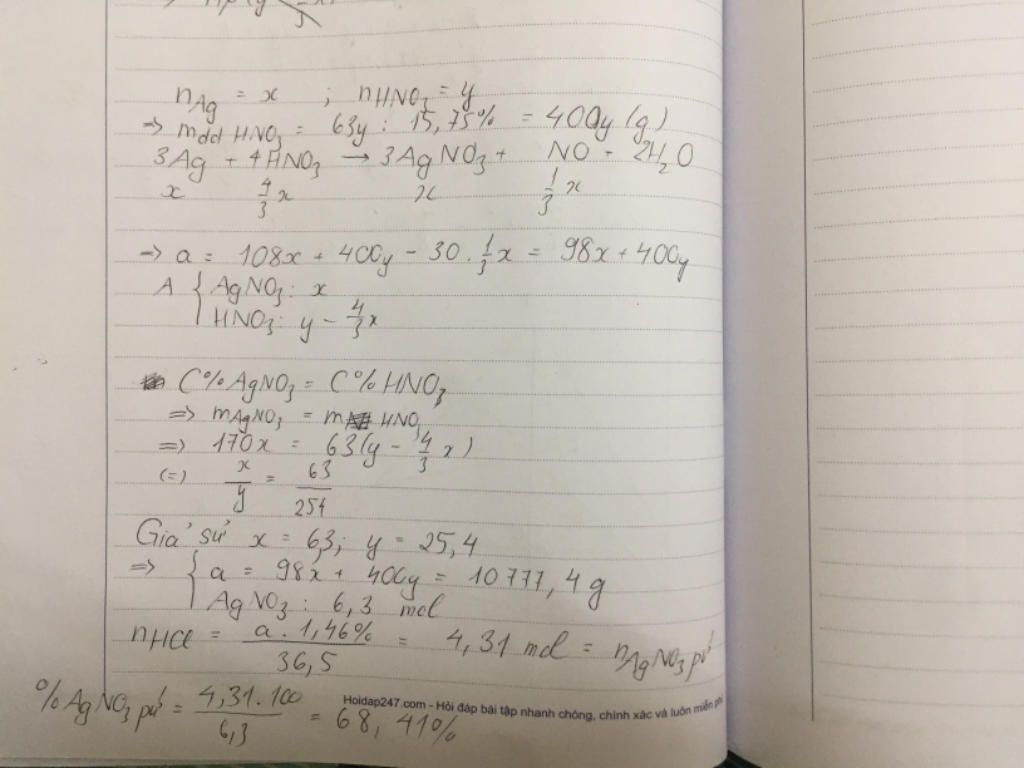 nAg = x ; nHNO3 = y
=> mdd HNO3 = 63y : 15,75% = 400y (g)
3Ag + 4HNO3 → 3AgNO3 + NO + 2H2O
x 4/3 x x 1/3 x
=> a = 108x + 400y - 30 . 1/3 x = 98x + 400y
A { AgNO3 : x
HNO3 : y - 4/3 x
C% AgNO3 = C% HNO3
=> mAgNO3 = m HNO3
=> 170x = 63(y - 4/3 x)
(=) x/y = 63/254
Giả sử x = 6,3; y = 25,4
=> { a = 98x + 400y = 10777,4 g
AgNO3 : 6,3 mol
nHCl = a . 1,46% / 36,5 = 4,31 mol = nAgNO3 pứ
% AgNO3 pứ = 4,31 . 100 / 6,3 = 68,41%
Hoidap247.com - Hỏi đáp bài tập nhanh chóng, chính xác và luôn miễn phí